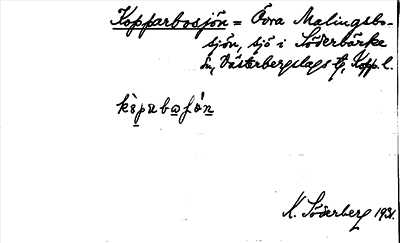 Kopparbosjön = Övra Malingsbo-
sjön, sjö i Söderbärke
sn, Västerbergslags tg, Kopp. l.
K. Söderberg 1931.